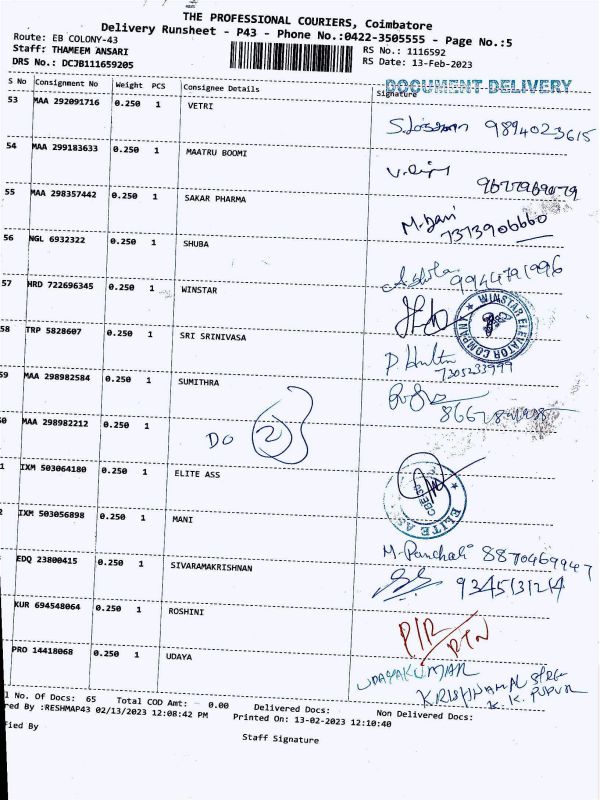 THE PROFESSIONAL COURIERS, Coimbatore
Delivery Runsheet - P43 - Phone No.:0422-3505555 - Page No.:5
Route: EB COLONY-43
RS No.: 1116592
Staff: THAMEEM ANSARI
RS Date: 13-Feb-2023
DRS No.: DCJB111659205
DOCUMENT DELIVERY
S No Consignment No Weight PCS Consignee Details Signature
53 MAA 292091716 0.250 1 VETRI
9894023615
54 MAA 299183633 0.250 1 MAATRU BOOMI
55 MAA 298357442 0.250 1 SAKAR PHARMA
7373906660
56 NGL 6932322 0.250 1 SHUBA
9944791996
57 NRD 722696345 0.250 1 WINSTAR
WINSTAR ELEVATOR COMPANY
58 TRP 5828607 0.250 1 SRI SRINIVASA
7305233999
59 MAA 298982584 0.250 1 SUMITHRA
60 MAA 298982212 0.250 1
DO 2
1 IXM 503064180 0.250 1 ELITE ASS
ELITE AS
2 IXM 503056898 0.250 1 MANI
M. Panchali 8870469947
EDQ 23800415 0.250 1 SIVARAMAKRISHNAN
KUR 694548064 0.250 1 ROSHINI
P/R RTN
PRO 14418068 0.250 1 UDAYA
UDAYAKUMAR
l No. Of Docs: 65 Total COD Amt: - 0.00 Delivered Docs: Non Delivered Docs:
red By :RESHMAP43 02/13/2023 12:08:42 PM Printed On: 13-02-2023 12:10:40
fied By
Staff Signature